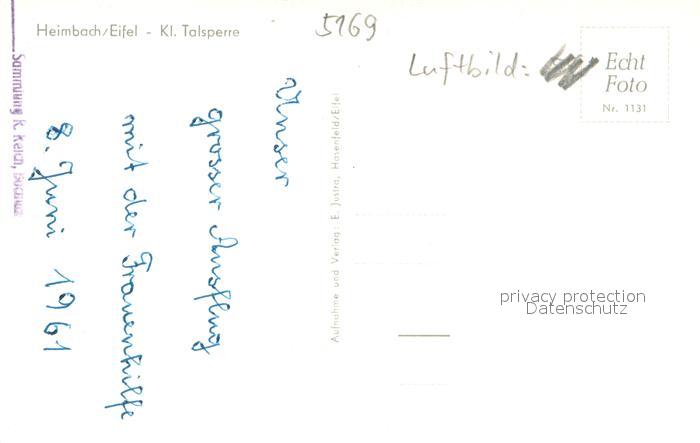 Heimbach/Eifel - Kl. Talsperre
5169
Luftbild:
Echt
Foto
Nr. 1131
Unser
grosser Ausflug
mit der Frauenhilfe
8. Juni 1961
Aufnahme und Verlag: E. Justra, Hasenfeld/Eifel
Sammlung K. Kelch,
privacy protection
Datenschutz